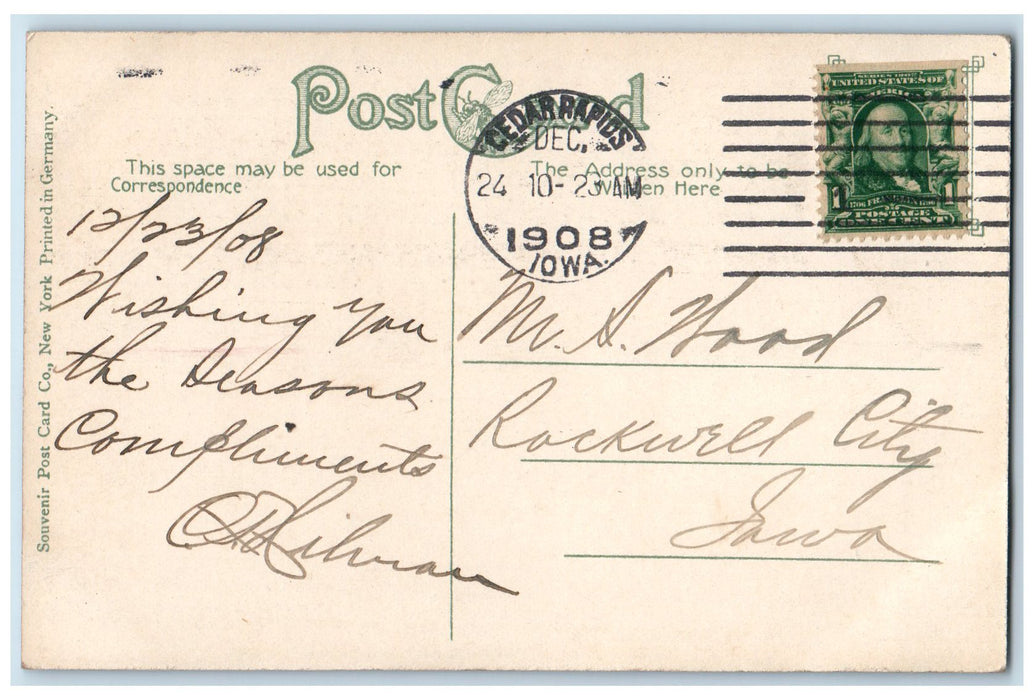 Post Card
This space may be used for
Correspondence
The Address only to be
Written Here
CEDAR RAPIDS
DEC.
24 10-23 AM
1908
IOWA.
SERIES 1902
UNITED STATES OF
AMERICA
1 1
FRANKLIN
POSTAGE
ONE CENT
12/23/08
Wishing you
the Seasons
Compliments
Mr. S. Wood
Rockwell City
Iowa
Souvenir Post Card Co., New York Printed in Germany.